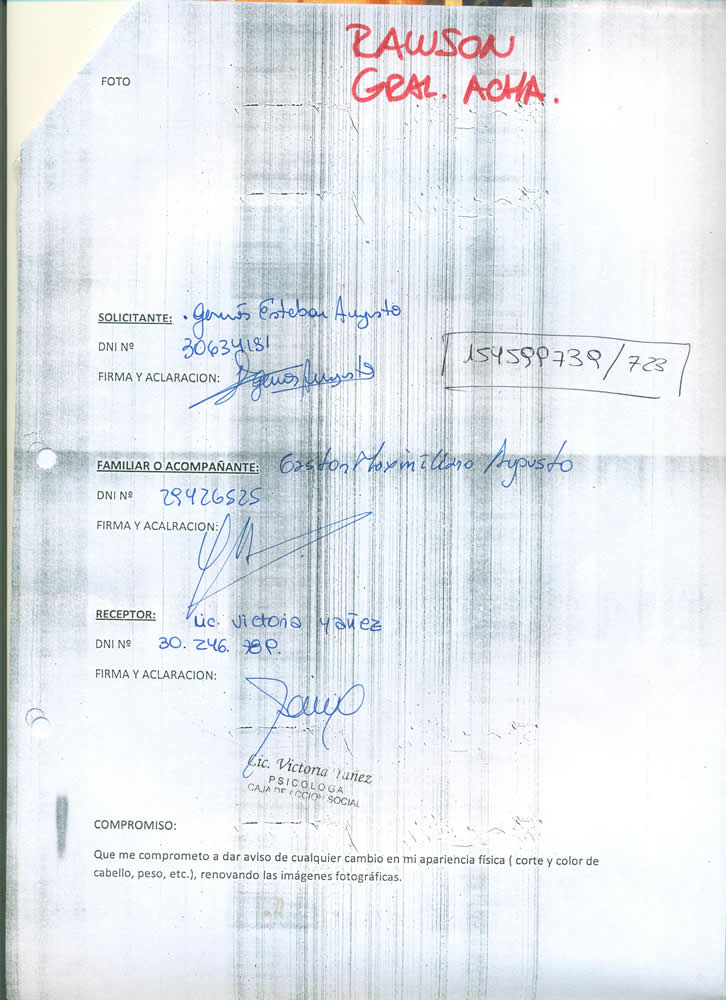 RAWSON
GRAL. ACHA.
FOTO
SOLICITANTE: . Germós Esteban Augusto
DNI Nº 30634181
FIRMA Y ACLARACION: Augusto
154599739/723
FAMILIAR O ACOMPAÑANTE: Gaston Maximiliano Augusto
DNI Nº 29426525
FIRMA Y ACALRACION:
RECEPTOR: Lic. Victoria Yañez
DNI Nº 30.246.
FIRMA Y ACLARACION:
Lic. Victoria Yañez
PSICOLOGA
CAJA DE ACCION SOCIAL
COMPROMISO:
Que me comprometo a dar aviso de cualquier cambio en mi apariencia física ( corte y color de
cabello, peso, etc.), renovando las imágenes fotográficas.